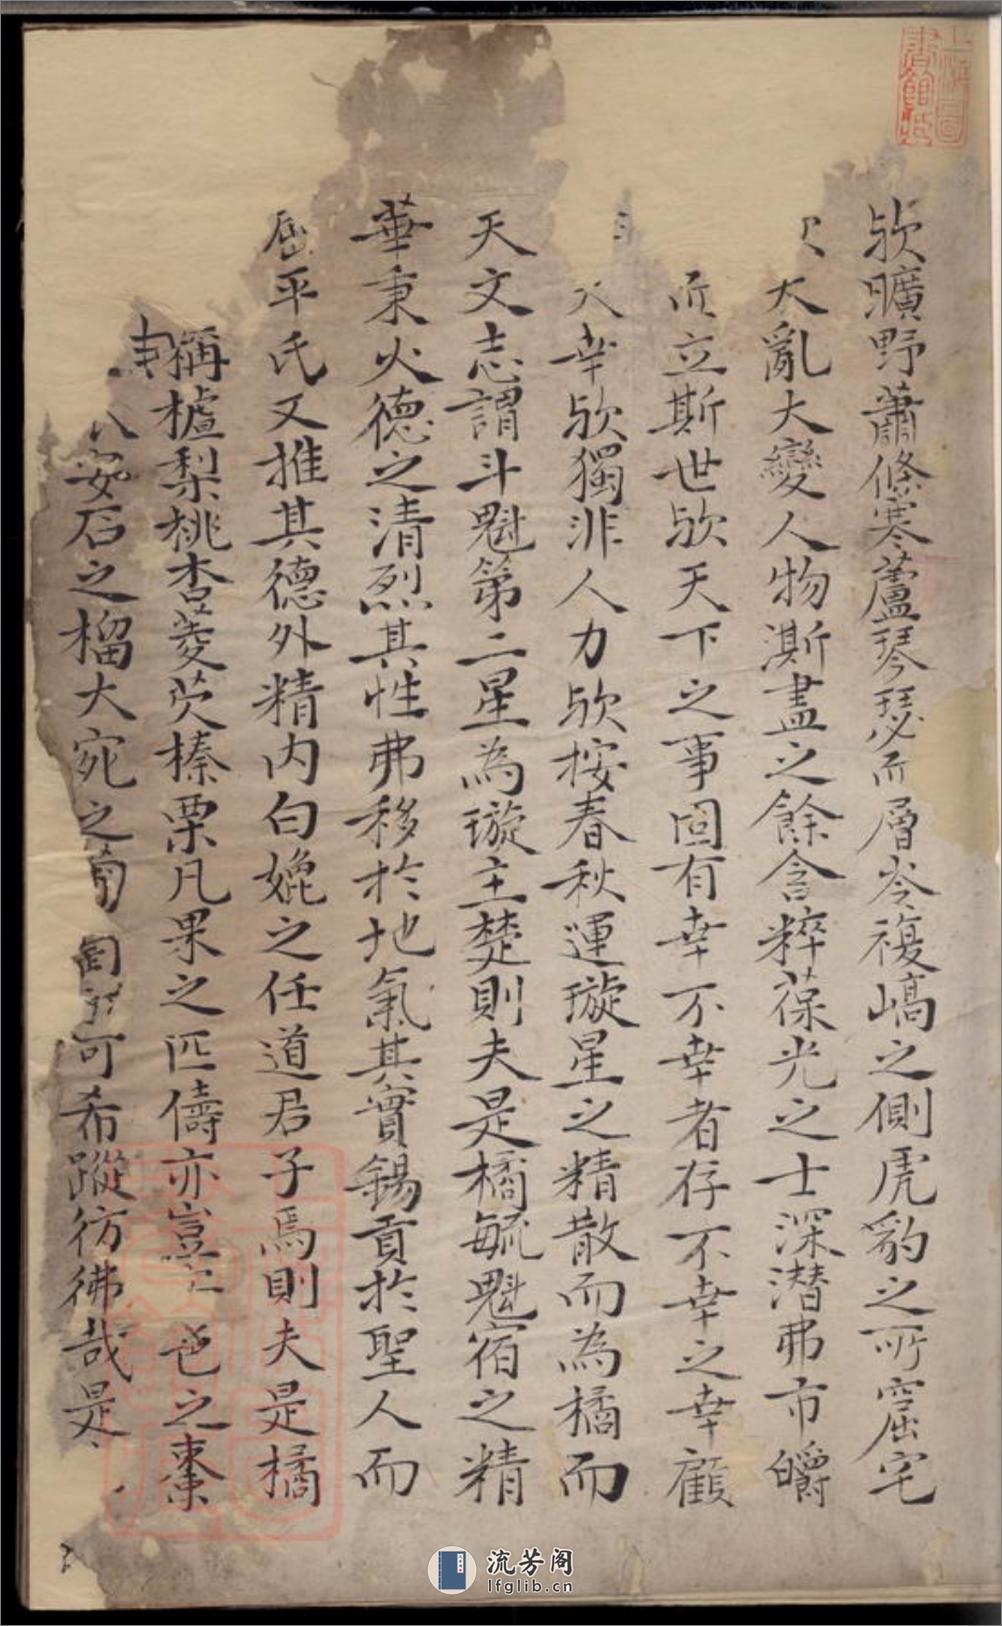 歟曠野蕭條寒蘆琴瑟而層岑複嵪之側虎豹之所窟宅
大亂大變人物澌盡之餘含粹葆光之士深潜弗市皭
而立斯世歟天下之事固有幸不幸者存不幸之幸顧
幸歟獨非人力歟按春秋運璇星之精散而為橘而
天文志謂斗魁第二星為璇主楚則夫是橘毓魁宿之精
華秉火德之清烈其性弗移於地氣其實錫貢於聖人而
屈平氏又推其德外精内白媲之任道君子焉則夫是橘
稱樝梨桃杏菱芡榛栗凡果之匹儔亦豈 邑之棗
安石之榴大宛之萄 可希蹤彷彿哉是
上海圖書館藏
流芳阁
lfglib.cn